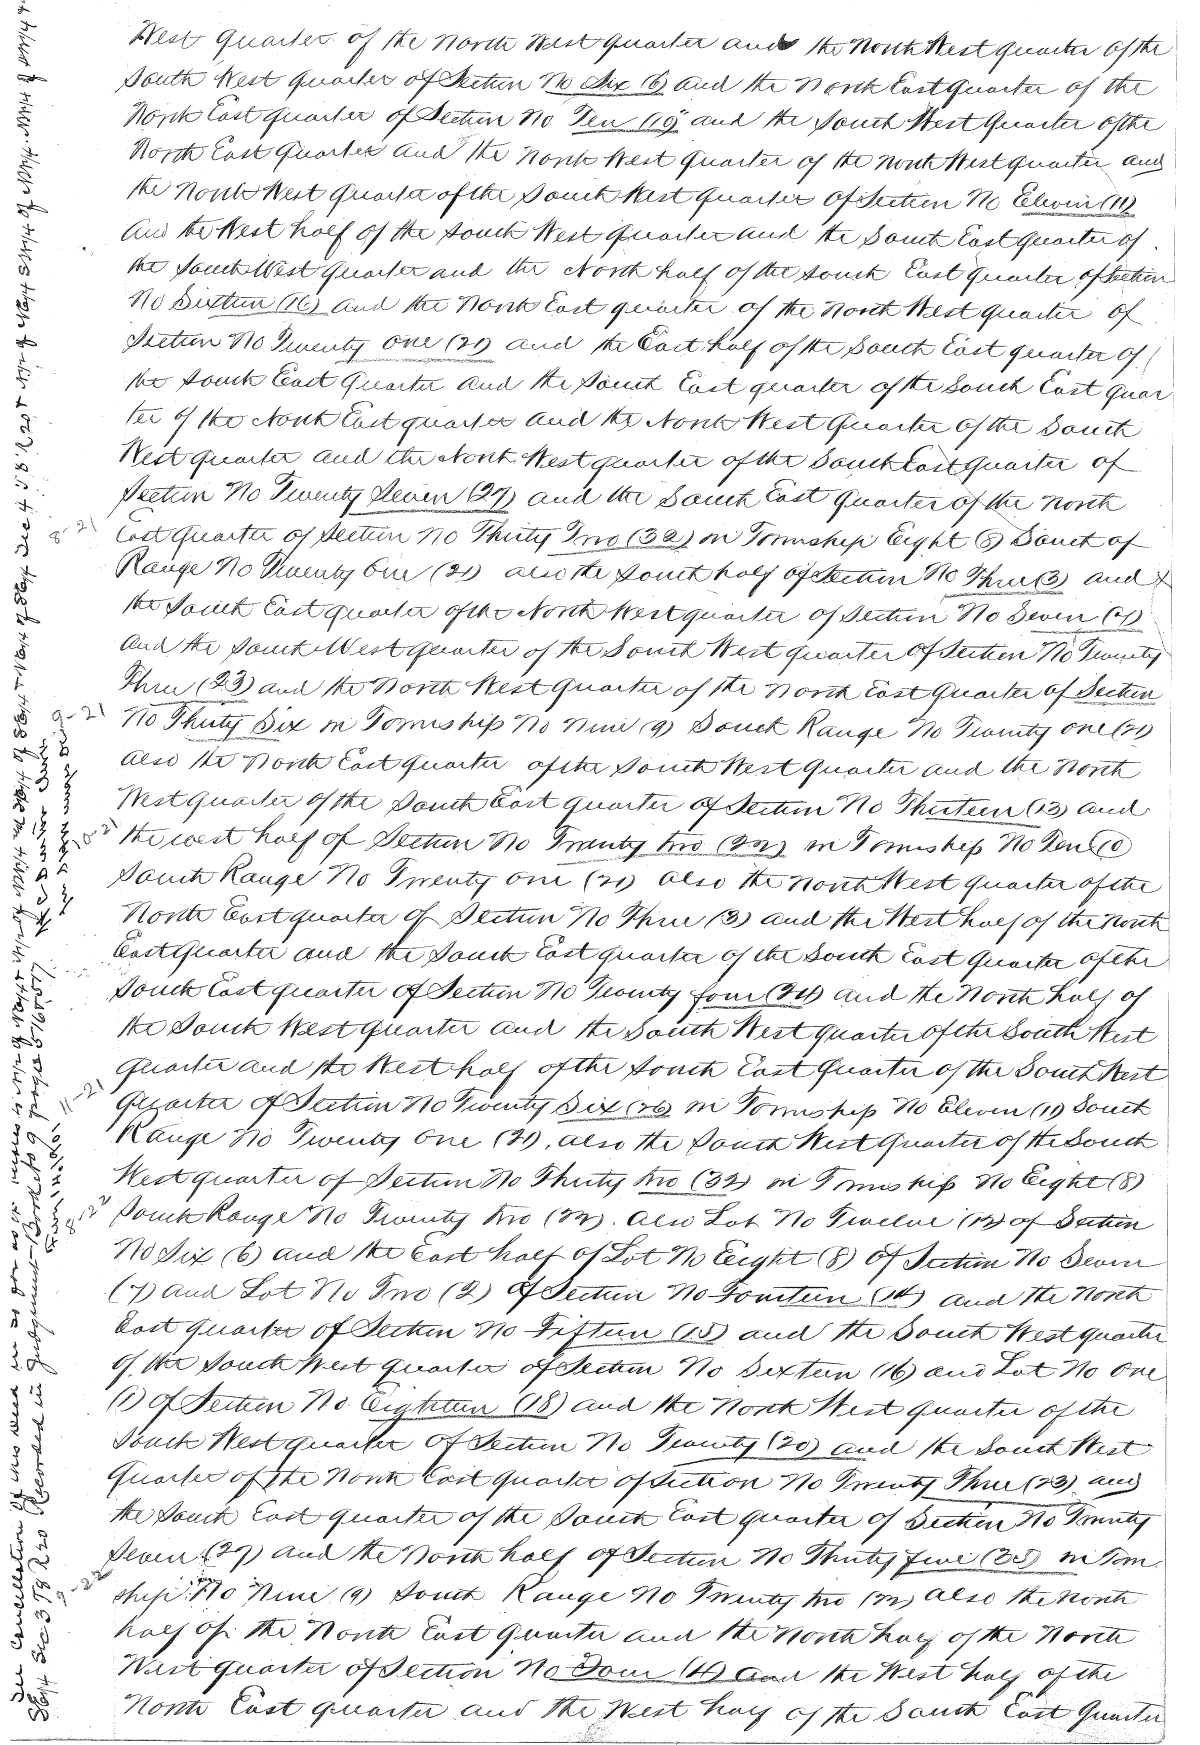 West quarter of the North West quarter and the North West quarter of the
South West quarter of Section No Six (6) and the North East quarter of the
North East quarter of Section No Ten (10) and the South West Quarter of the
North East Quarter and the North West quarter of the North West quarter and
the North West Quarter of the South West quarter of Section No Elevin (11)
And the West half of the South West Quarter and the South East Quarter of
the South West Quarter and the North half of the South East quarter of Section
No Sixteen (16) and the North East quarter of the North West quarter of
Section No Twenty one (21) and the East half of the South East quarter of
the South East Quarter and the South East quarter of the South East quar
ter of the North East quarter and the North West Quarter of the South
West quarter and the North West quarter of the South East quarter of
Section No Twenty Seven (27) and the South East Quarter of the North
East Quarter of Section No Thirty Two (32) in Township Eight (8) South of
8-21
Range No Twenty One (21) also the South half of Section No Three (3) and
the South East quarter of the North West quarter of Section No Seven (7)
And the South West quarter of the South West quarter of Section No Twenty
Three (23) and the North West Quarter of the North East Quarter of Section
No Thirty Six in Township No Nine (9) South Range No Twenty one (21)
9-21
also the North East Quarter of the South West Quarter and the North
West quarter of the South East quarter of Section No Thirteen (13) and
the west half of Section No Twenty two (22) in Township No Ten (10)
10-21
South Range No Twenty one (21) also the North West quarter of the
North East quarter of Section No Three (3) and the West half of the North
East Quarter and the South East quarter of the South East Quarter of the
South East quarter of Section No Twenty four (24) and the North half of
the South West quarter and the South West Quarter of the South West
quarter and the West half of the South East Quarter of the South West
Quarter of Section No Twenty Six (26) in Township No Eleven (11) South
11-21
Range No Twenty One (21). also the South West Quarter of the South
West quarter of Section No Thirty two (32) in Township No Eight (8)
South Range No Twenty two (22). Also Lot No Twelve (12) of Section
8-22
No Six (6) and the East half of Lot No Eight (8) of Section No Seven
(7) and Lot No Two (2) of Section No Fourteen (14) and the North
East quarter of Section No Fifteen (15) and the South West quarter
of the South West quarter of Section No Sixteen (16) and Lot No one
(1) of Section No Eighteen (18) and the North West quarter of the
South West quarter of Section No Twenty (20) and the South West
Quarter of the North East quarter of Section No Twenty Three (23) and
the South East quarter of the South East quarter of Section No Twenty
Seven (27) and the North half of Section No Thirty five (35) in Town
ship No Nine (9) South Range No Twenty two (22) also the North
9-22
half of the North East Quarter and the North half of the North
West quarter of Section No Four (4) and the West half of the
North East quarter and the West half of the South East Quarter
See Cancellation of this deed in so far as
Recorded in Judgment Book No 9 pages 576, 577